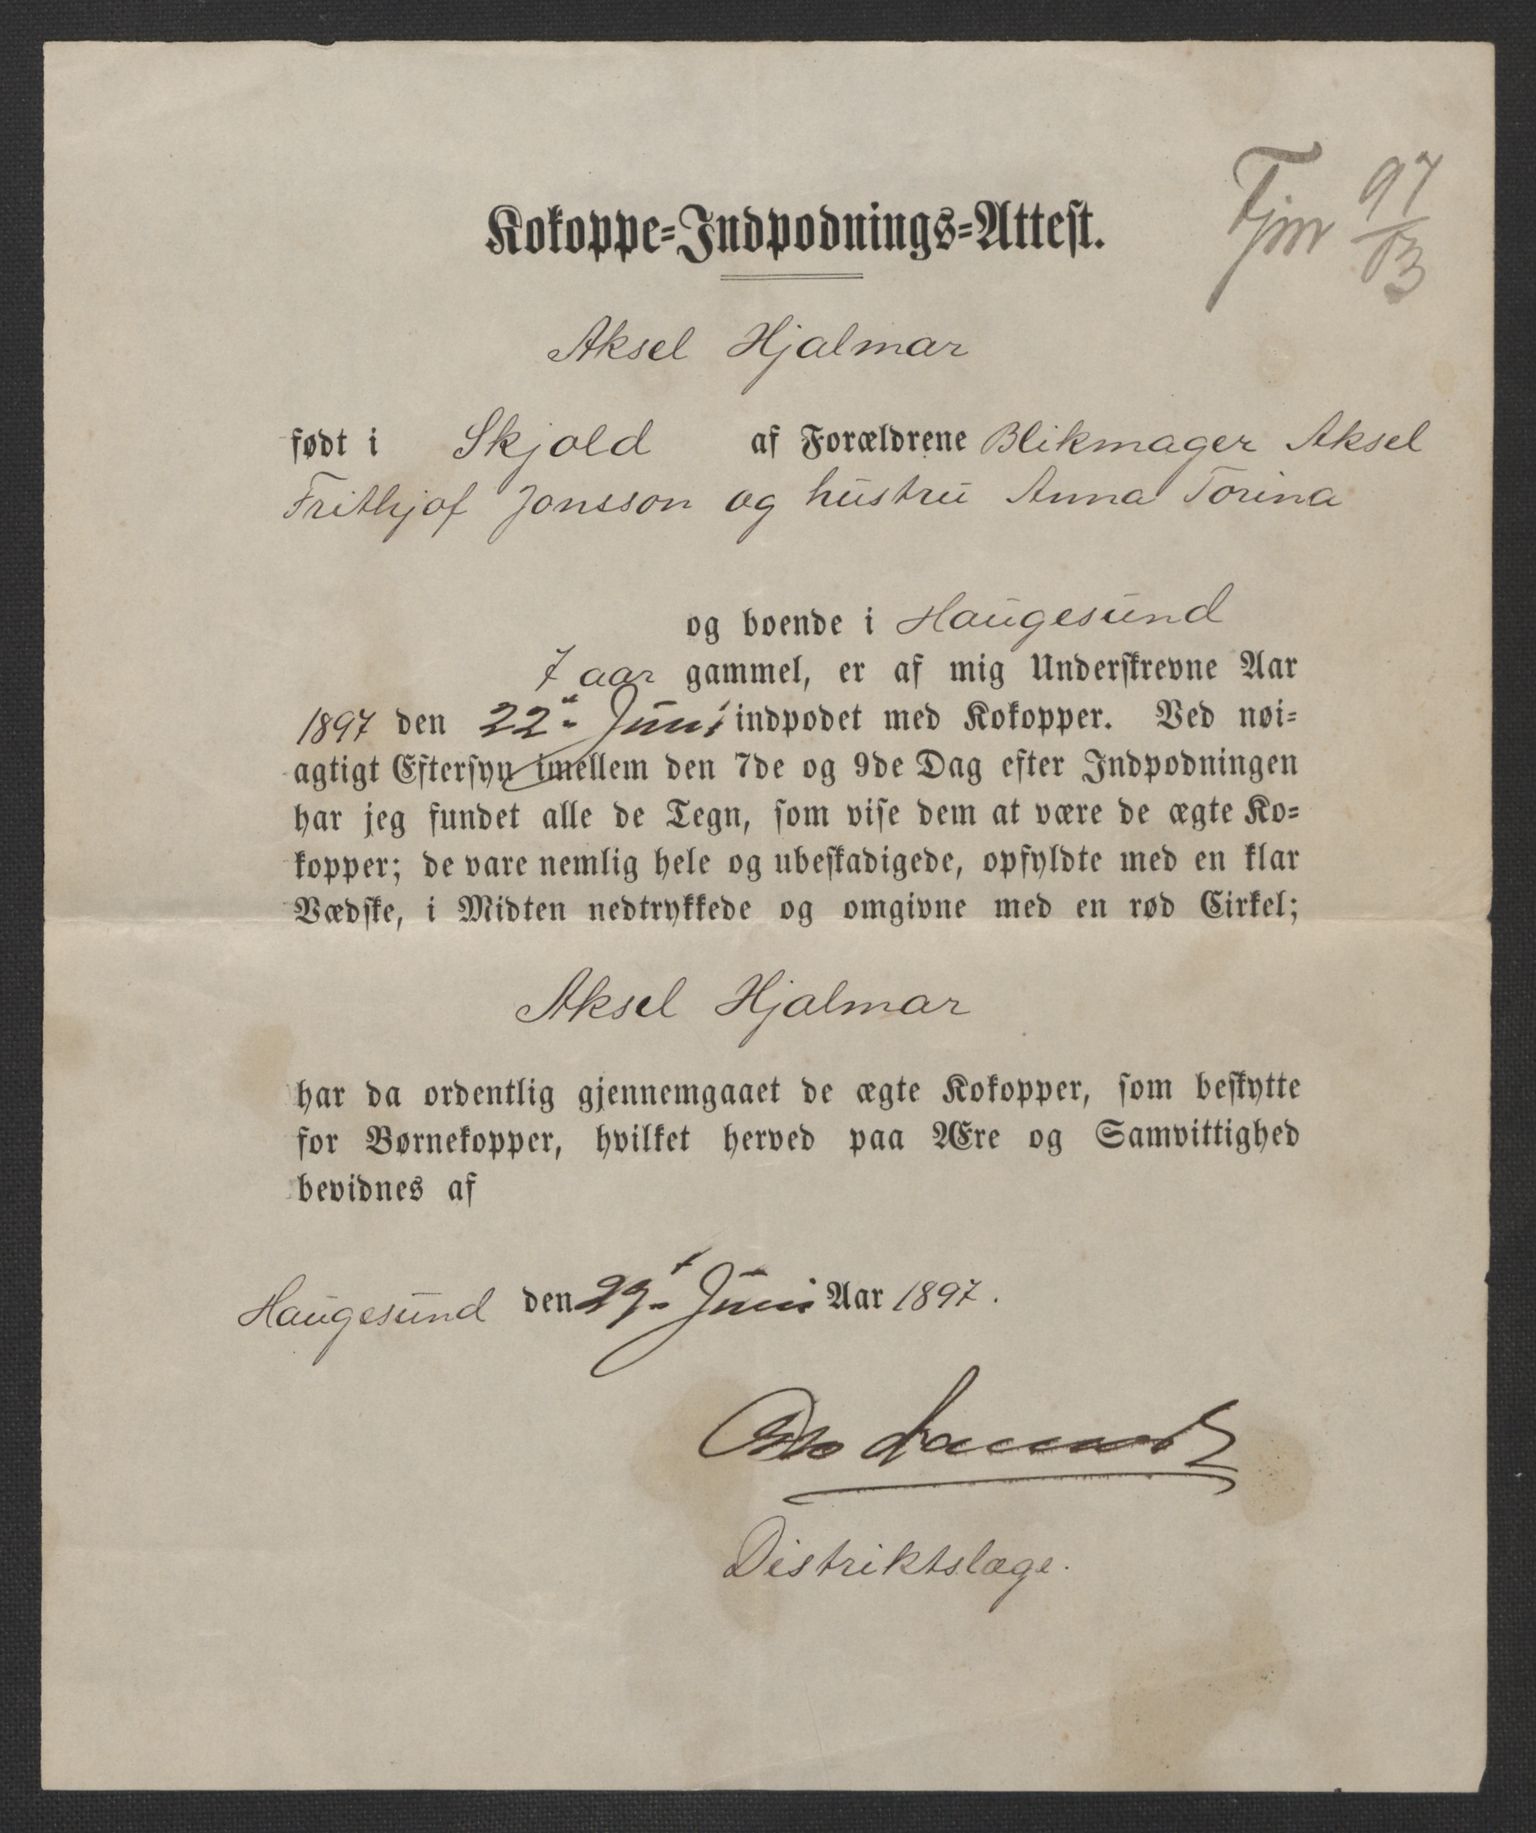 Kokoppe-Indpodnings-Attest.
Tjm 97/03
Aksel Hjalmar
født i Skjold af Forældrene Blikmager Aksel
Frithjof Jonsson og hustru Anna Torina
og boende i Haugesund
7 aar gammel, er af mig Underskrevne Aar
1897 den 22 Juni indpodet med Kokopper. Ved nøi-
agtigt Eftersyn imellem den 7de og 9de Dag efter Indpodningen
har jeg fundet alle de Tegn, som vise dem at være de ægte Ko-
kopper; de vare nemlig hele og ubeskadigede, opfyldte med en klar
Vædske, i Midten nedtrykkede og omgivne med en rød Cirkel;
Aksel Hjalmar
har da ordentlig gjennemgaaet de ægte Kokopper, som beskytte
for Børnekopper, hvilket herved paa Ære og Samvittighed
bevidnes af
Haugesund den 29 Juni Aar 1897.
Distriktslæge.